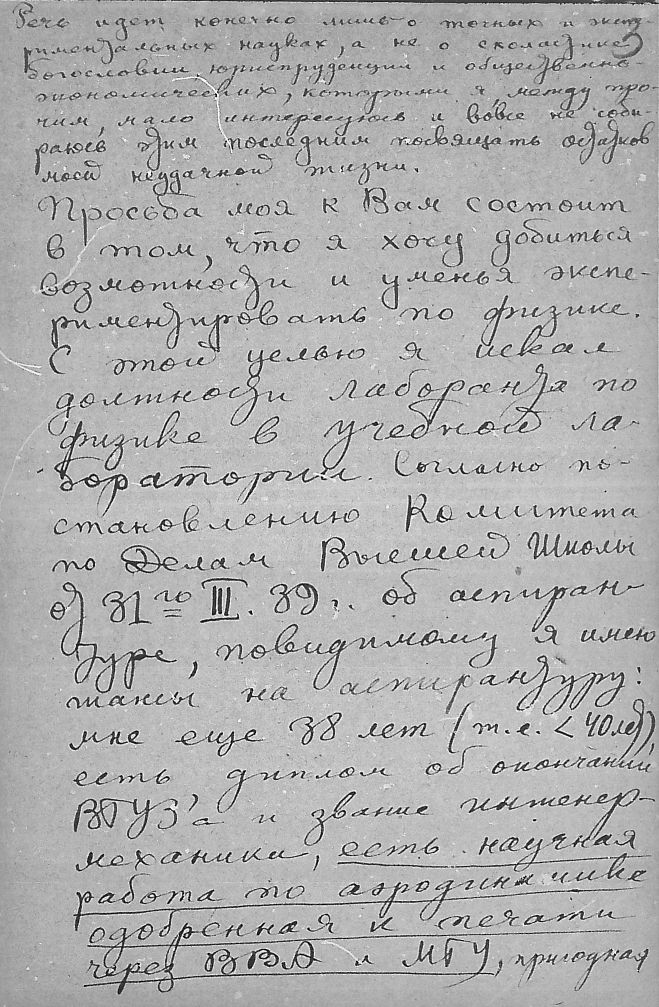 Речь идет конечно лишь о точных и экспе-
3
риментальных науках, а не о схоластике
богословии, юриспруденции и общественно-
экономических, которыми я, между про-
чим, мало интересуюсь и вовсе не соби-
раюсь этим последним посвящать остатков
моей неудачной жизни.
Просьба моя к Вам состоит
в том, что я хочу добиться
возможности и уменья экспе-
риментировать по физике.
С этой целью я искал
должности лаборанта по
физике в учебной ла-
боратории. Согласно по-
становлению Комитета
по Делам Высшей Школы
от 31го III. 39 г. об аспиран-
туре, повидимому я имею
шансы на аспирантуру:
мне еще 38 лет (т.е. < 40 лет),
есть диплом об окончании
ВТУЗ'а и звание инженер-
механика, есть научная
работа по аэродинамике
одобренная к печати
через ВВА и МГУ, пригодная